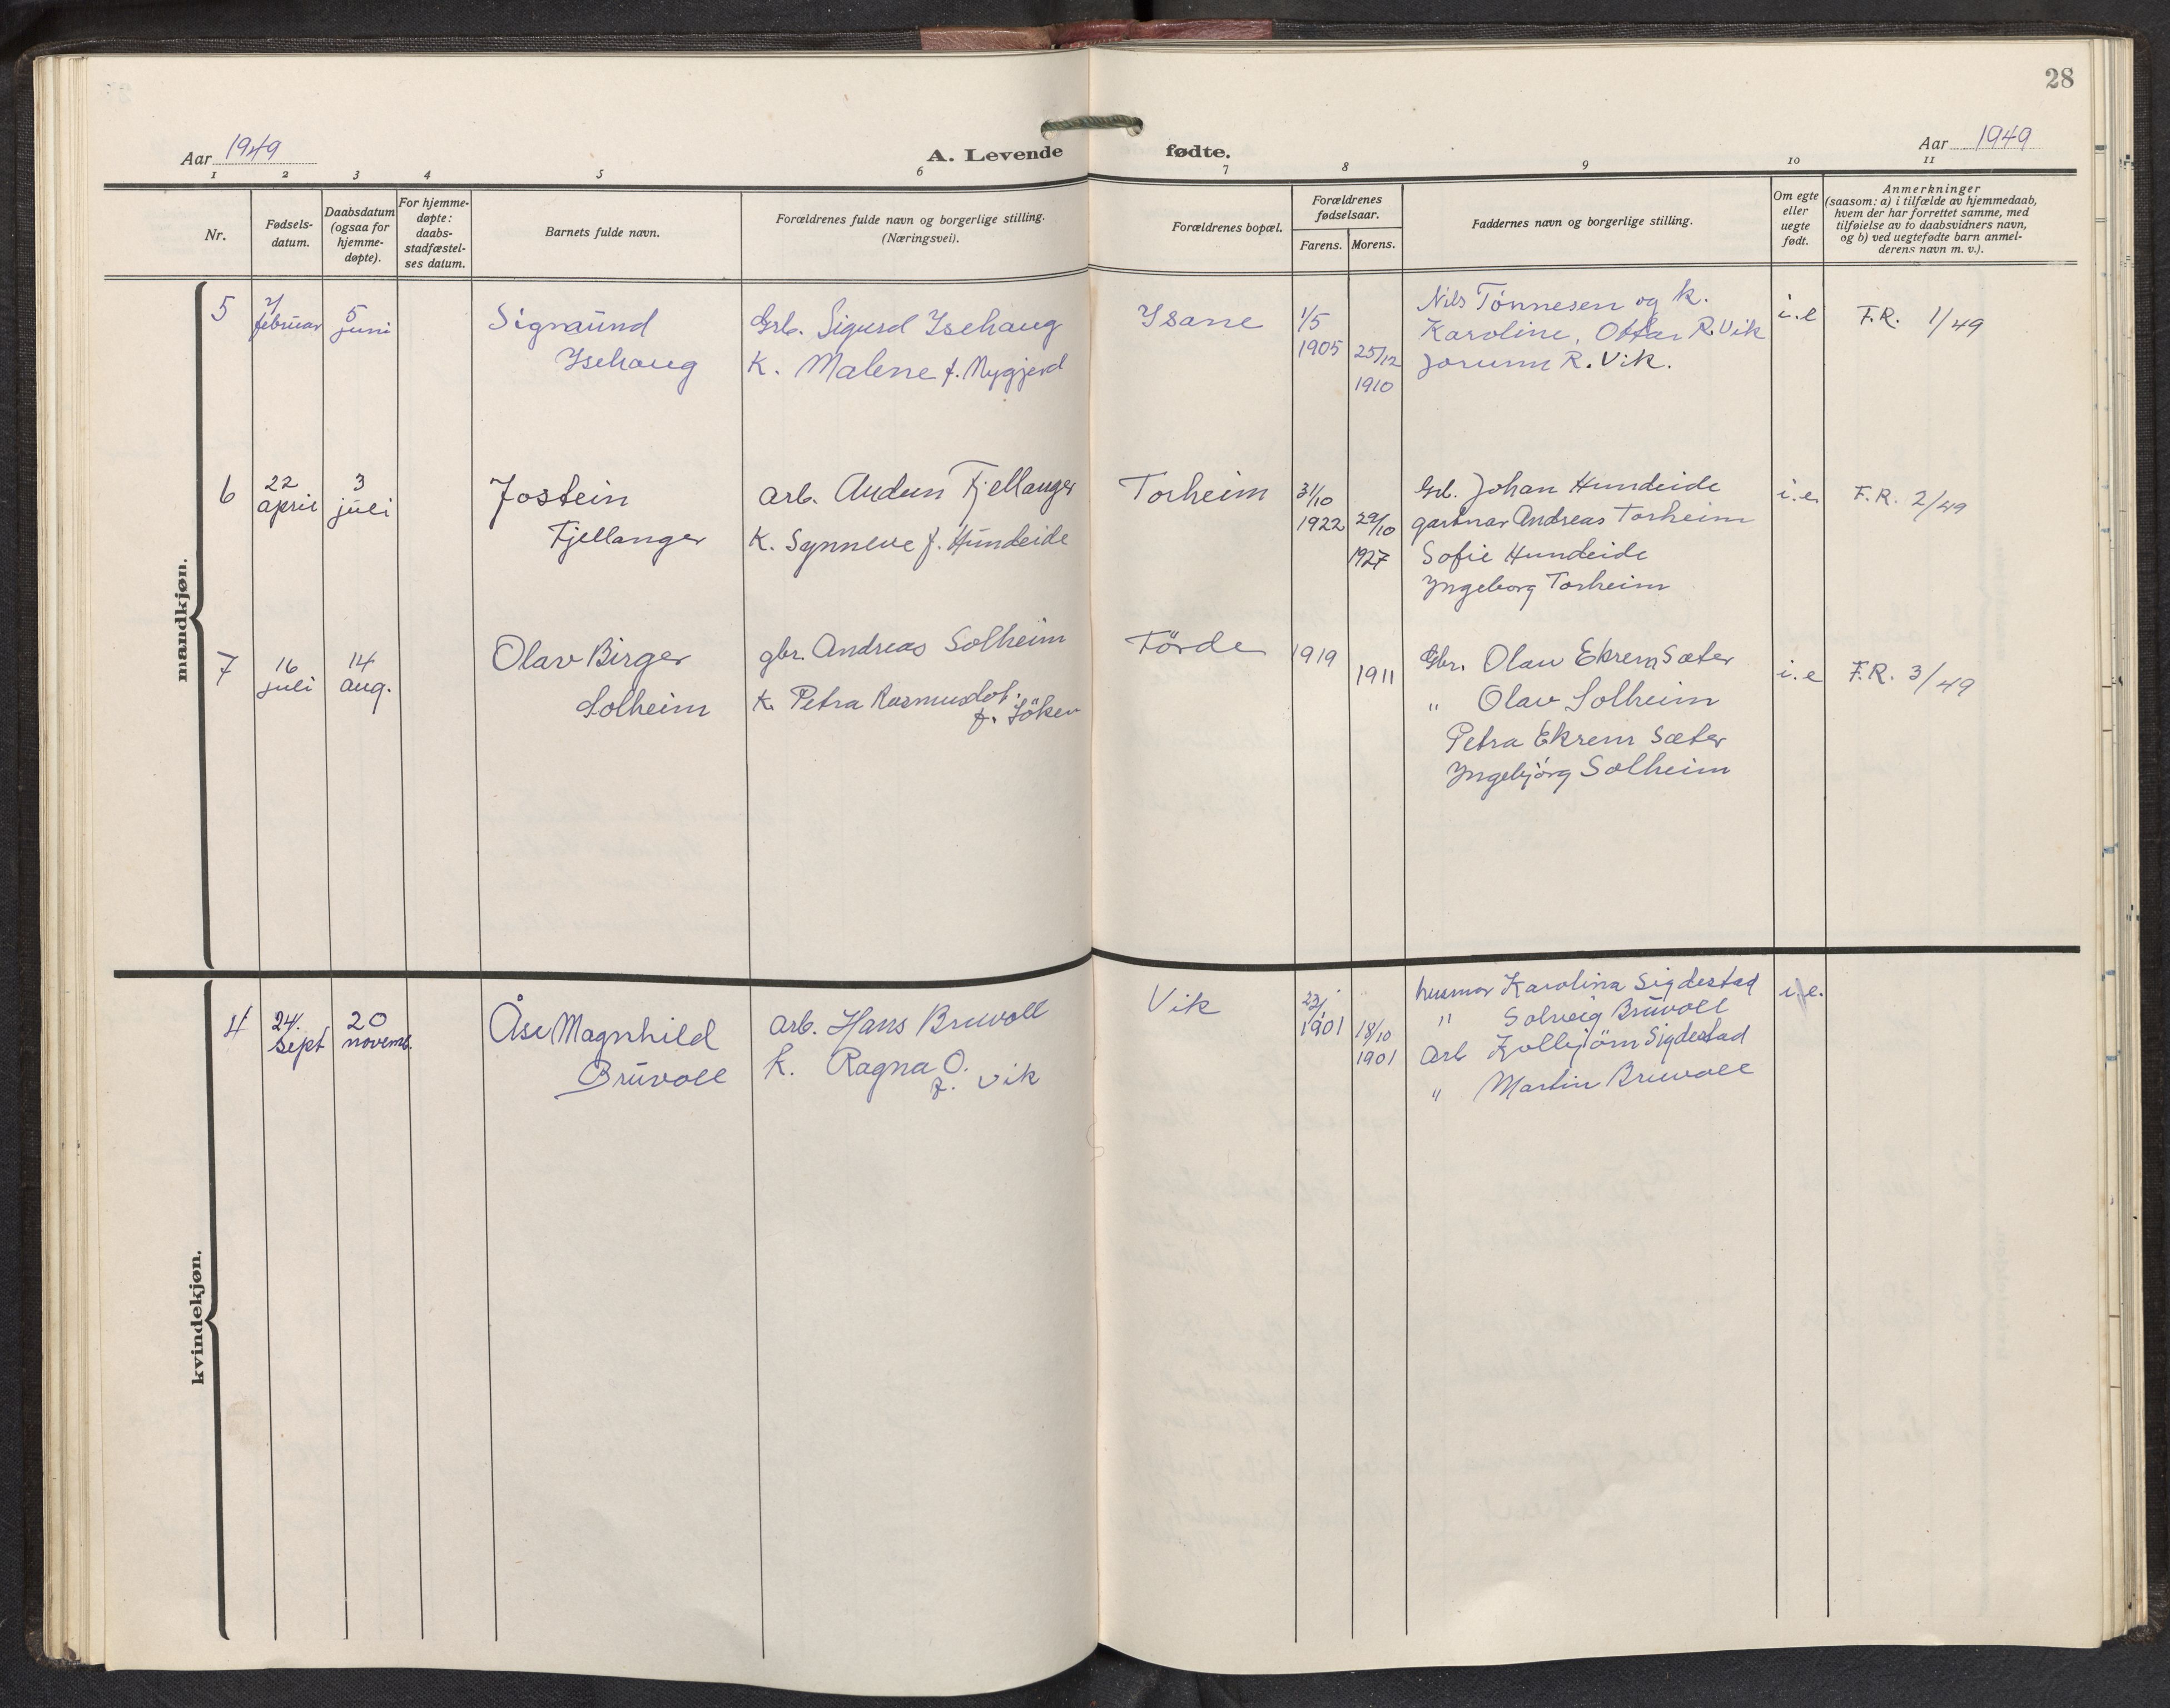 28
Aar 1949
A. Levende fødte.
Aar 1949
1 2 3 4 5 6 7 8 9 10 11
Nr.
Fødsels-
datum.
Daabsdatum
(ogsaa for
hjemme-
døpte).
For hjemme-
døpte:
daabs-
stadfæstel-
ses datum.
Barnets fulde navn.
Forældrenes fulde navn og borgerlige stilling.
(Næringsvei).
Forældrenes bopæl.
Forældrenes
fødselsaar.
Farens. Morens.
Faddernes navn og borgerlige stilling.
Om egte
eller
uegte
født.
Anmerkninger
(saasom: a) i tilfælde av hjemmedaab,
hvem der har forrettet samme, med
tilføielse av to daabsvidners navn,
og b) ved uegtefødte barn anmel-
derens navn m. v.).
mandkjøn.
5
februar
5
juni
Sigmund
Isehaug
Sigurd Isehaug
K. Malene f. Nygjerd
Isane
1/5
1905
25/12
1910
Nils Tönnesen og k.
Karoline, Ottar R. Vik
Jorunn R. Vik.
i.e
F.R. 1/49
6
22
april
3
juli
Jostein
Fjellanger
arb. Audun Fjellanger
K. Synneve f. Hundeide
Torheim
31/10
1922
29/10
1927
Johan Hundeide
gartnar Andreas Torheim
Sofie Hundeide
Yngeborg Torheim
i.e.
F.R. 2/49
7
16
juli
14
aug.
Olav Birger
Solheim
gbr. Andreas Solheim
K. Petra Rasmusdot.
f.
Förde
1919
1911
Gbr. Olav Ekrem Sæter
" Olav Solheim
Petra Ekrem Sæter
Yngebjörg Solheim
i.e
F.R. 3/49
kvindekjøn.
4
24.
sept
20
novemb.
Åse Magnhild
Bruvoll
arb. Hans Bruvoll
k. Ragna O.
f. Vik
Vik
1901
18/10
1901
husmor Karolina Sigdestad
" Solveig Bruvoll
arb Kolbjörn Sigdestad
" Martin Bruvoll
i.e.